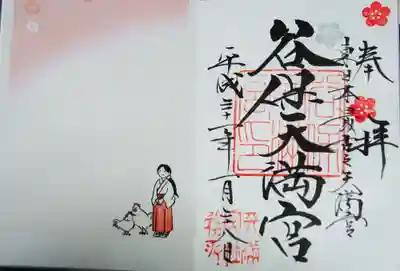 奉拝
東日本最古之天満宮
谷保天満宮
平成三十一年一月二八日